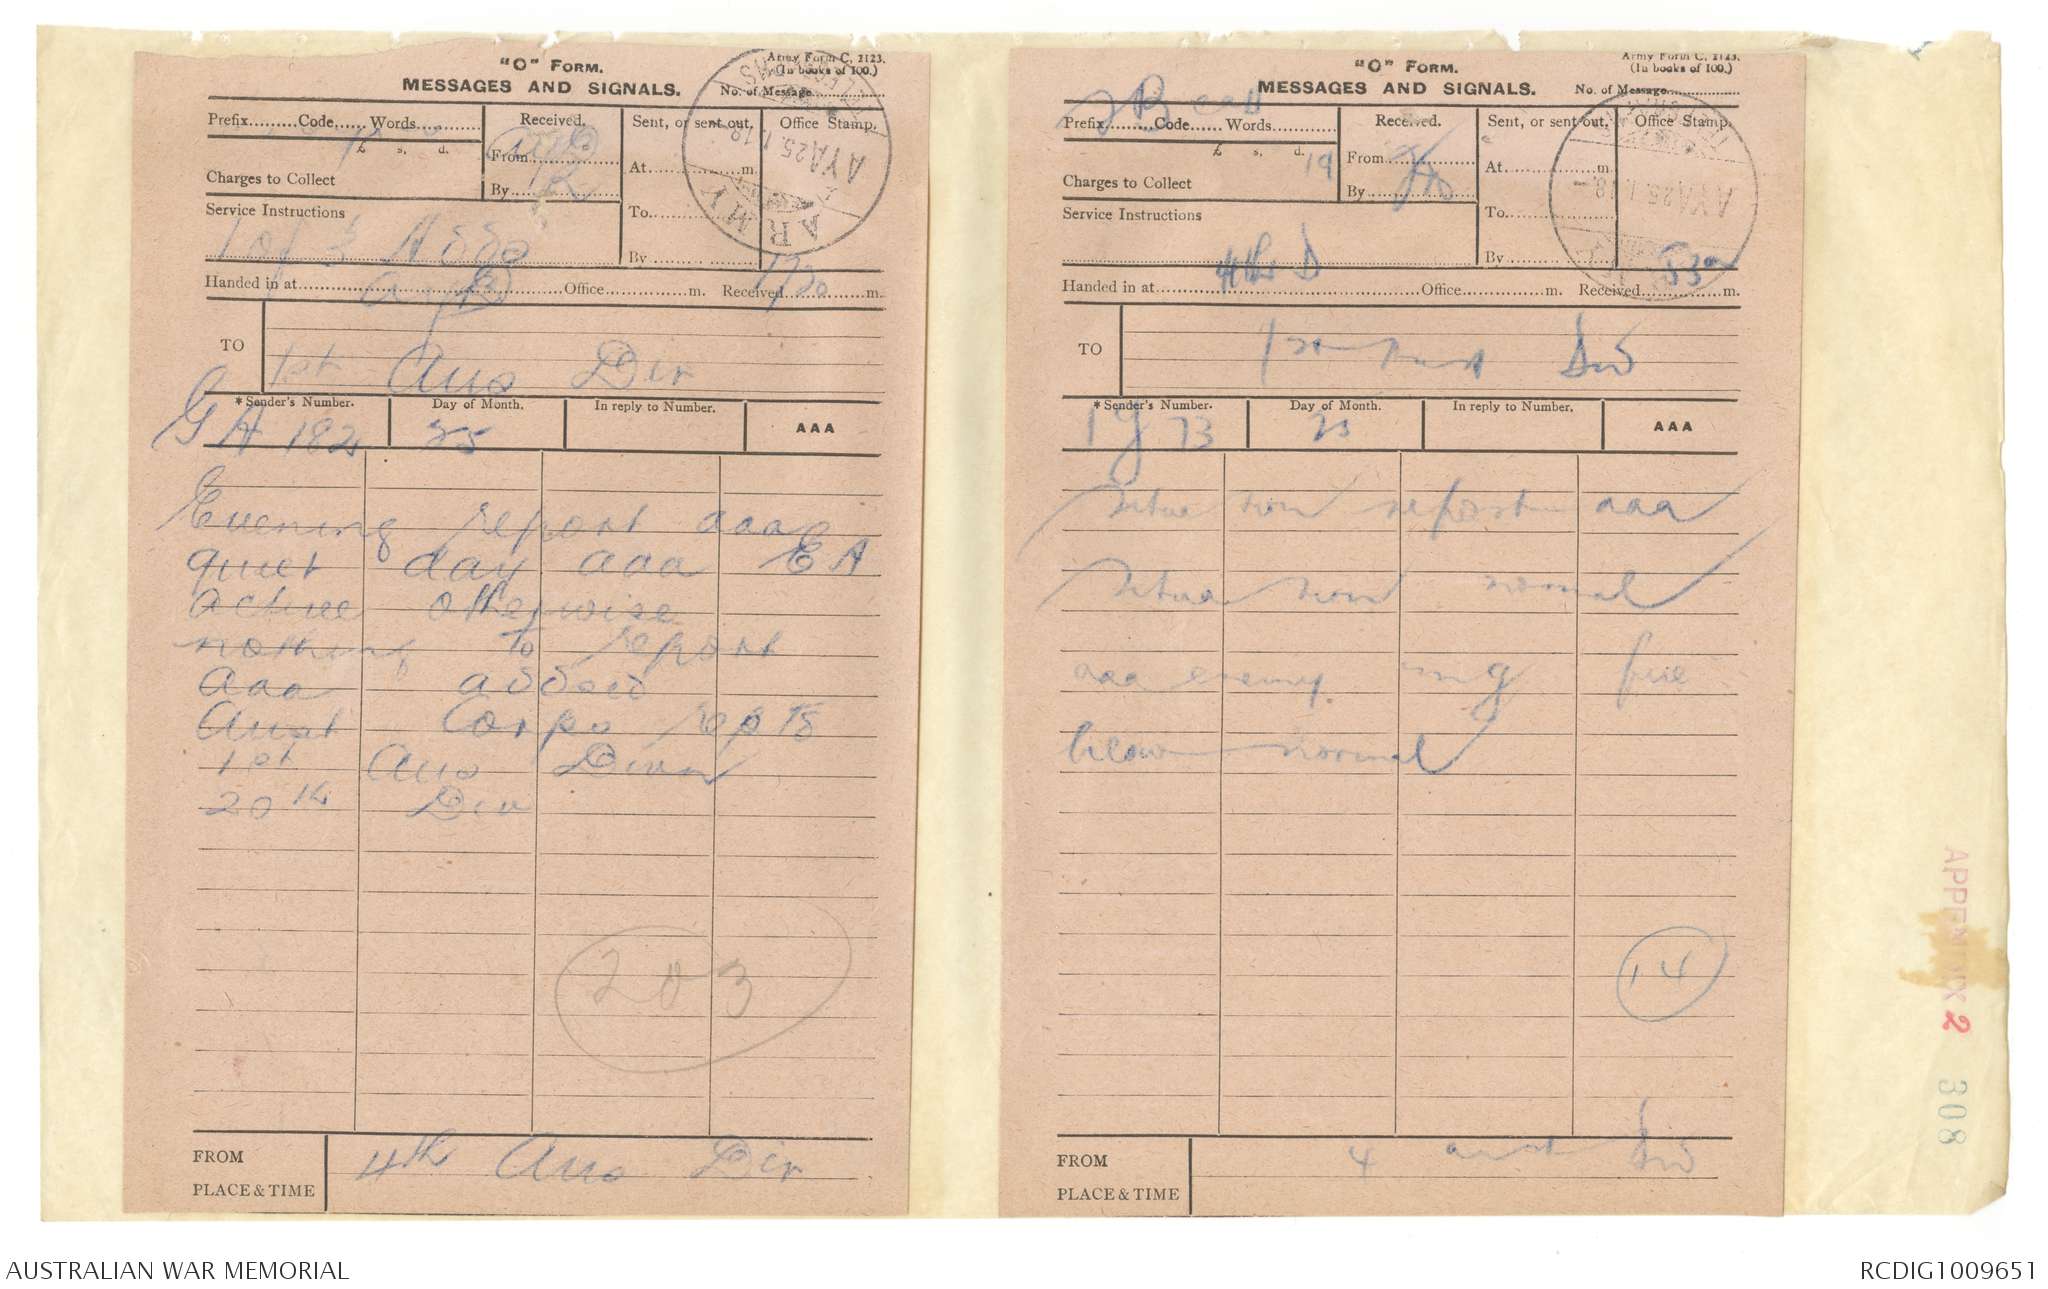 "O" FORM.
MESSAGES AND SIGNALS.
Army Form C. 2123.
(In books of 100.)
No. of Message
Prefix Code Words
Received.
Sent, or sent out.
Office Stamp.
£ s. d.
From
By
At m.
To
By
Charges to Collect
Service Instructions
ARMY TELEGRAPHS
AYA 25.1.18
Handed in at Office m. Received m.
TO
1st Aus Div
*Sender's Number.
Day of Month.
In reply to Number.
AAA
GA 182
25
Evening report aaa
quiet day aaa EA
active otherwise
nothing to report
aaa addsed
Aust Corps repts
1st Aus Divn
20th Div
203
FROM
PLACE & TIME
4th Aus Div
"O" FORM.
MESSAGES AND SIGNALS.
Army Form C. 2123.
(In books of 100.)
No. of Message
Prefix Code Words
Received.
Sent, or sent out.
Office Stamp.
£ s. d.
19
From
By
At m.
To
By
Charges to Collect
Service Instructions
AYA 25.1.18
Handed in at Office m. Received m.
4th D
TO
1st Aust Div
*Sender's Number.
Day of Month.
In reply to Number.
AAA
1g 73
25
Situation report aaa
Situation normal
aaa enemy mg fire
below normal
14
FROM
PLACE & TIME
4 aust Div
APPENDIX 2
308
AUSTRALIAN WAR MEMORIAL
RCDIG1009651